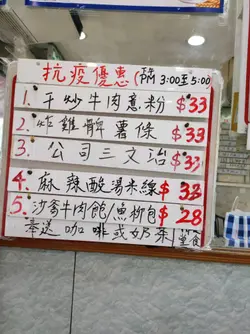 抗疫優惠(下午PM 3:00至5:00)
1. 干炒牛肉意粉 $33
2. 炸雞髀薯條 $33
3. 公司三文治 $33
4. 麻辣酸湯米線 $33
5. 沙爹牛肉飽/魚柳包 $28
奉送咖啡或奶茶 堂食